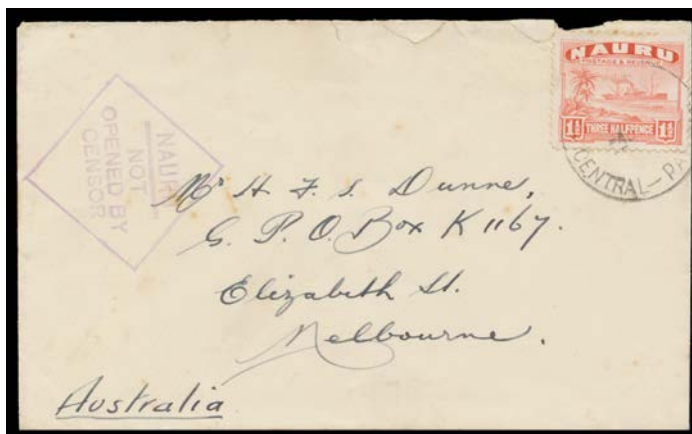 NAURU
POSTAGE & REVENUE
1½ THREE HALFPENCE 1½
CENTRAL — PA
NAURU
NOT
OPENED BY
CENSOR
Mr H. F. S. Dunne,
G. P. O. Box K 1167.
Elizabeth St.
Melbourne.
Australia